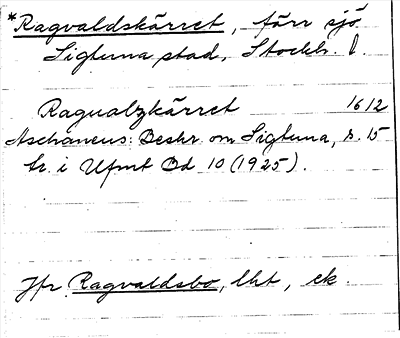 *Ragvaldskärret, förr sjö
Sigtuna stad, Stockh. l.
Ragualzkärret 1612
Aschaneus: Beskr om Sigtuna, s. 15
tr. i Ufmt Bd 10 (1925).
Jfr Ragvaldsbo, lht, ek.